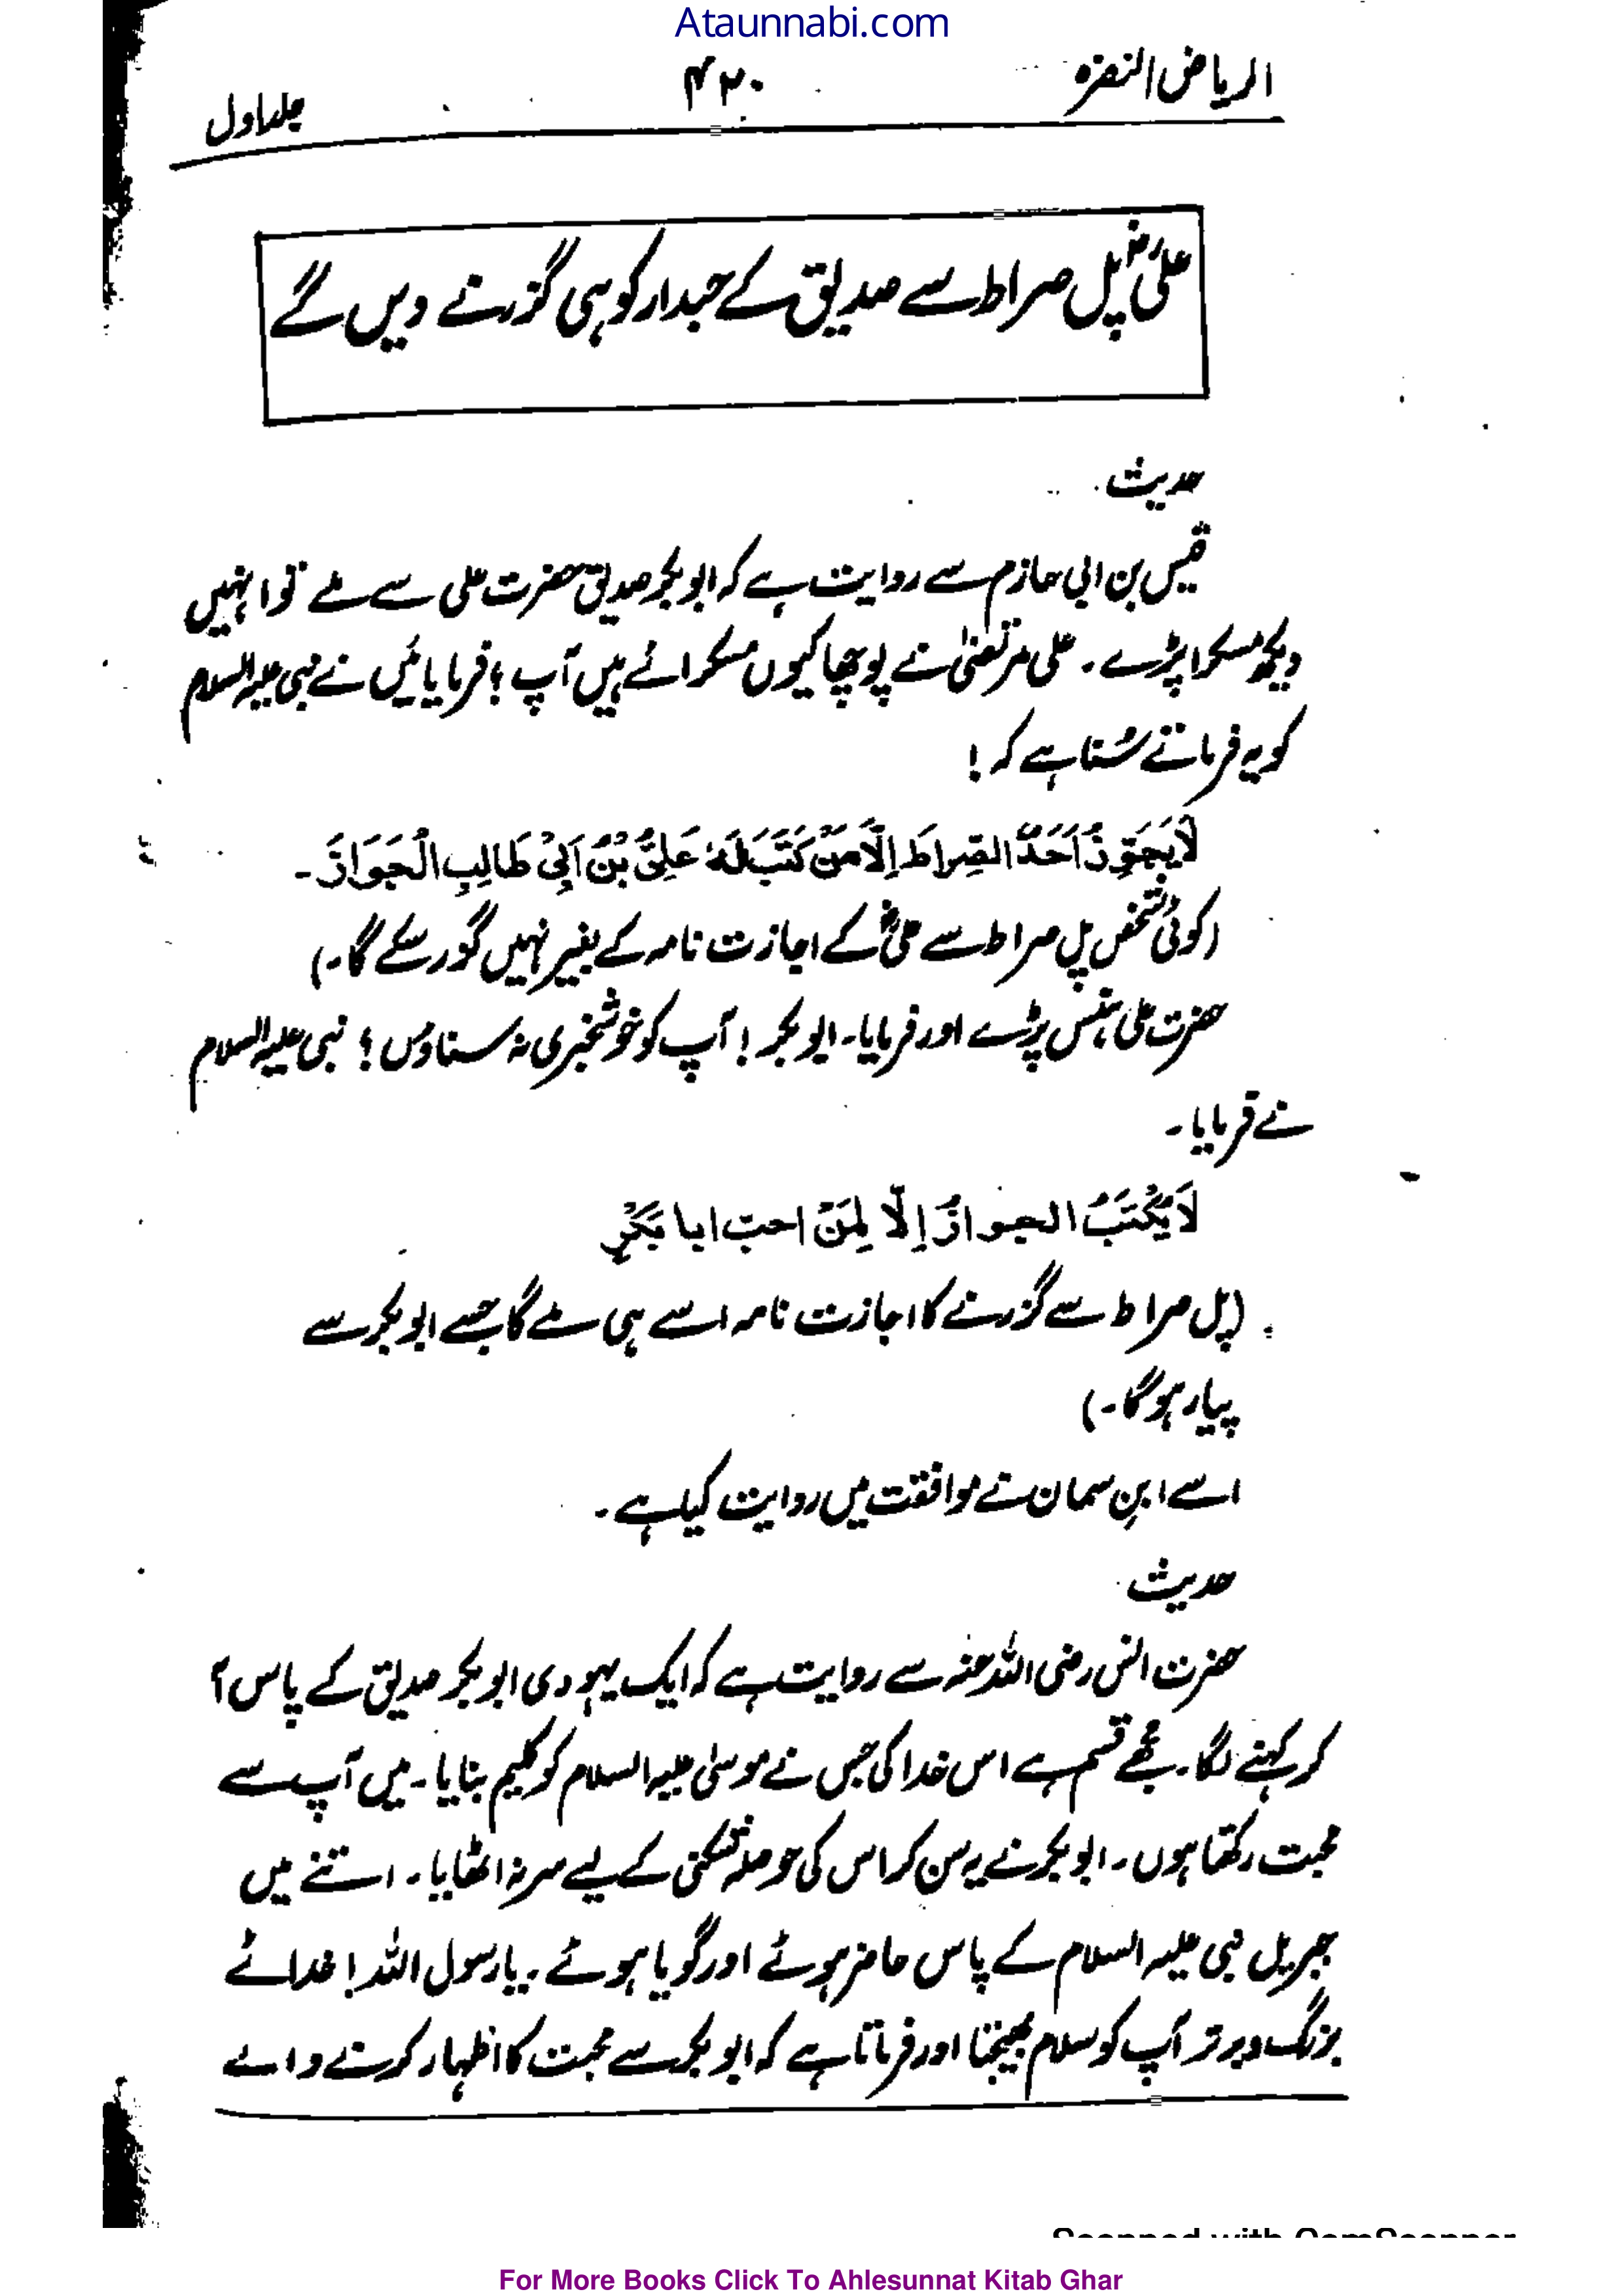 Ataunnabi.com
الریاض النضرہ ۴۲۰ جلد اول
علیؓ پل صراط سے صدیق کے حبدار کو ہی گزرنے دیں گے
حدیث
قیس بن ابی حازم سے روایت ہے کہ ابو بکر صدیق حضرت علی سے ملے تو انہیں
دیکھ مسکرا پڑے ۔ علی مرتضیٰ نے پوچھا کیوں مسکرائے ہیں آپ ؟ فرمایا میں نے نبی علیہ السلام
کو یہ فرماتے سُنا ہے کہ !
لَا یَجُوْزُ اَحَدٌ الصِّرَاطَ اِلَّا مَنْ کَتَبَ لَہٗ عَلِیُّ بْنُ اَبِیْ طَالِبِ الْجَوَازَ ۔
(کوئی شخص پل صراط سے علیؓ کے اجازت نامہ کے بغیر نہیں گزر سکے گا ۔)
حضرت علی ہنس پڑے اور فرمایا ۔ ابو بکر ! آپ کو خوشخبری نہ سناؤں ؟ نبی علیہ السلام
نے فرمایا ۔
لَا یُکْتَبُ الجوازُ اِلَّا لِمَنْ احبّ ابا بَکْرٍ
(پل صراط سے گزرنے کا اجازت نامہ اسے ہی ملے گا جسے ابو بکر سے
پیار ہوگا ۔)
اسے ابنِ سمان نے موافقت میں روایت کیا ہے ۔
حدیث
حضرت انس رضی اللہ عنہ سے روایت ہے کہ ایک یہودی ابو بکر صدیق کے پاس آ
کر کہنے لگا ۔ مجھے قسم ہے اس خدا کی جس نے موسیٰ علیہ السلام کو کلیم بنایا ۔ میں آپ سے
محبت رکھتا ہوں ۔ ابو بکر نے یہ سن کر اس کی حوصلہ شکنی کے لیے سر نہ اٹھایا ۔ اتنے میں
جبریل نبی علیہ السلام کے پاس حاضر ہوئے اور گویا ہوئے ۔ یا رسول اللہ ! خدائے
بزرگ و برتر آپ کو سلام بھیجتا اور فرماتا ہے کہ ابو بکر سے محبت کا اظہار کرنے والے
Scanned with CamScanner
For More Books Click To Ahlesunnat Kitab Ghar